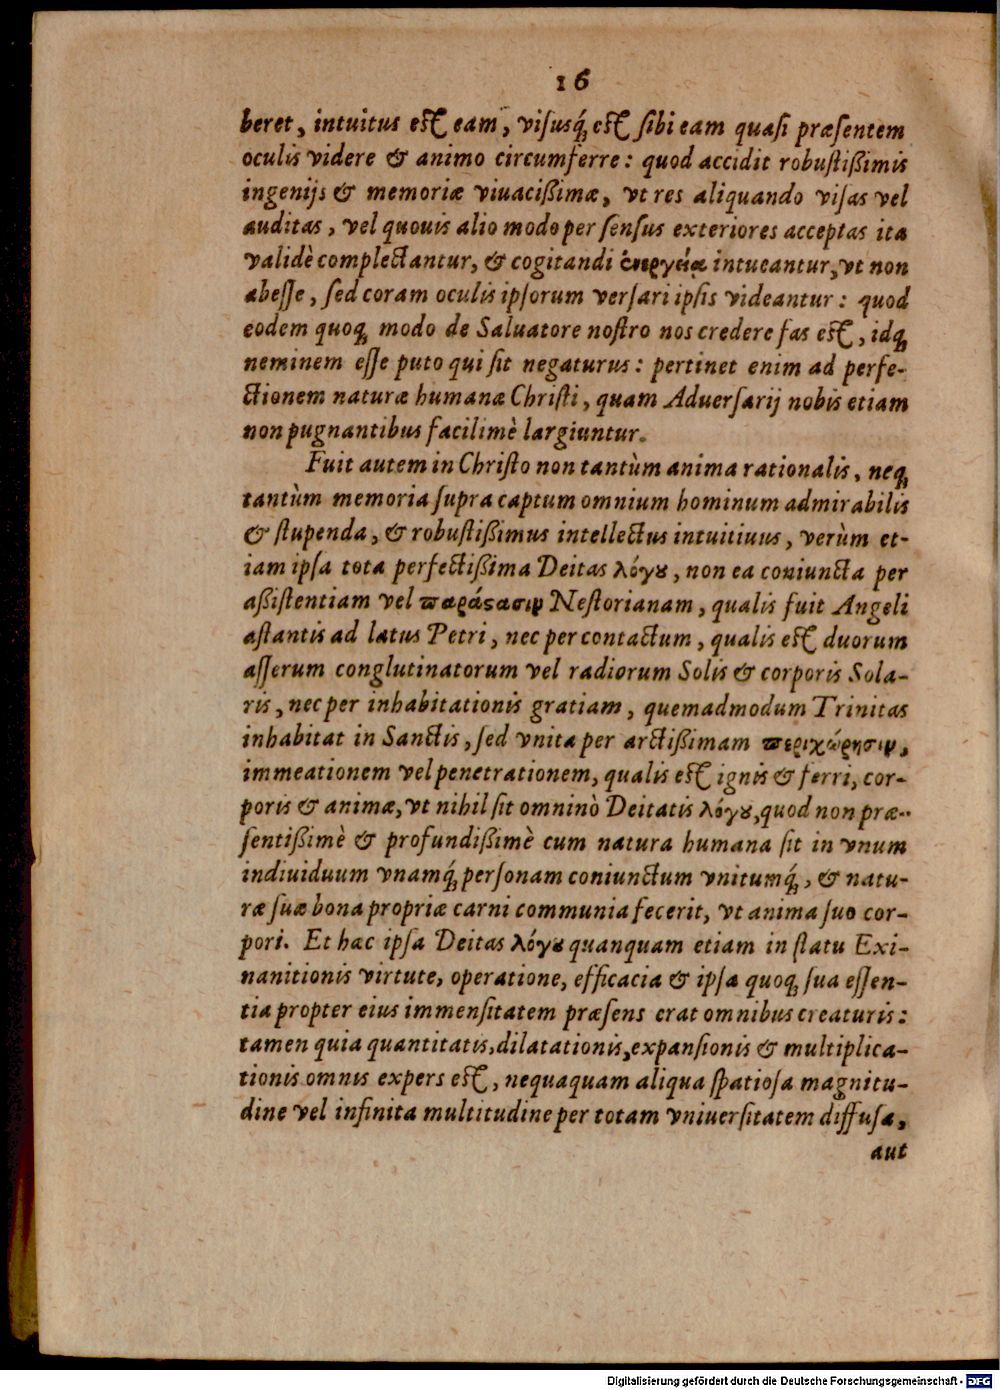 16
beret, intuitus est eam, visusq́; est sibi eam quasi præsentem
oculis videre & animo circumferre: quod accidit robustißimis
ingenijs & memoriæ viuacißimæ, vt res aliquando visas vel
auditas, vel quouis alio modo per sensus exteriores acceptas ita
validè complectantur, & cogitandi ἐνεργείᾳ intueantur, vt non
abesse, sed coram oculis ipsorum versari ipsis videantur: quod
eodem quoq; modo de Saluatore nostro nos credere fas est, idq;
neminem esse puto qui sit negaturus: pertinet enim ad perfe-
ctionem naturæ humanæ Christi, quam Aduersarij nobis etiam
non pugnantibus facilimè largiuntur.
Fuit autem in Christo non tantùm anima rationalis, neq;
tantùm memoria supra captum omnium hominum admirabilis
& stupenda, & robustißimus intellectus intuitiuus, verùm et-
iam ipsa tota perfectißima Deitas λόγȣ, non ea coniuncta per
aßistentiam vel παράϛασιν Nestorianam, qualis fuit Angeli
astantis ad latus Petri, nec per contactum, qualis est duorum
asserum conglutinatorum vel radiorum Solis & corporis Sola-
ris, nec per inhabitationis gratiam, quemadmodum Trinitas
inhabitat in Sanctis, sed vnita per arctißimam περιχώρησιν,
immeationem vel penetrationem, qualis est ignis & ferri, cor-
poris & animæ, vt nihil sit omninò Deitatis λόγȣ, quod non præ-
sentißimè & profundißimè cum natura humana sit in vnum
indiuiduum vnamq́; personam coniunctum vnitumq́;, & natu-
ræ suæ bona propriæ carni communia fecerit, vt anima suo cor-
pori. Et hac ipsa Deitas λόγȣ quanquam etiam in statu Exi-
nanitionis virtute, operatione, efficacia & ipsa quoq; sua essen-
tia propter eius immensitatem præsens erat omnibus creaturis:
tamen quia quantitatis, dilatationis, expansionis & multiplica-
tionis omnis expers est, nequaquam aliqua spatiosa magnitu-
dine vel infinita multitudine per totam vniuersitatem diffusa,
aut
Digitalisierung gefördert durch die Deutsche Forschungsgemeinschaft - DFG